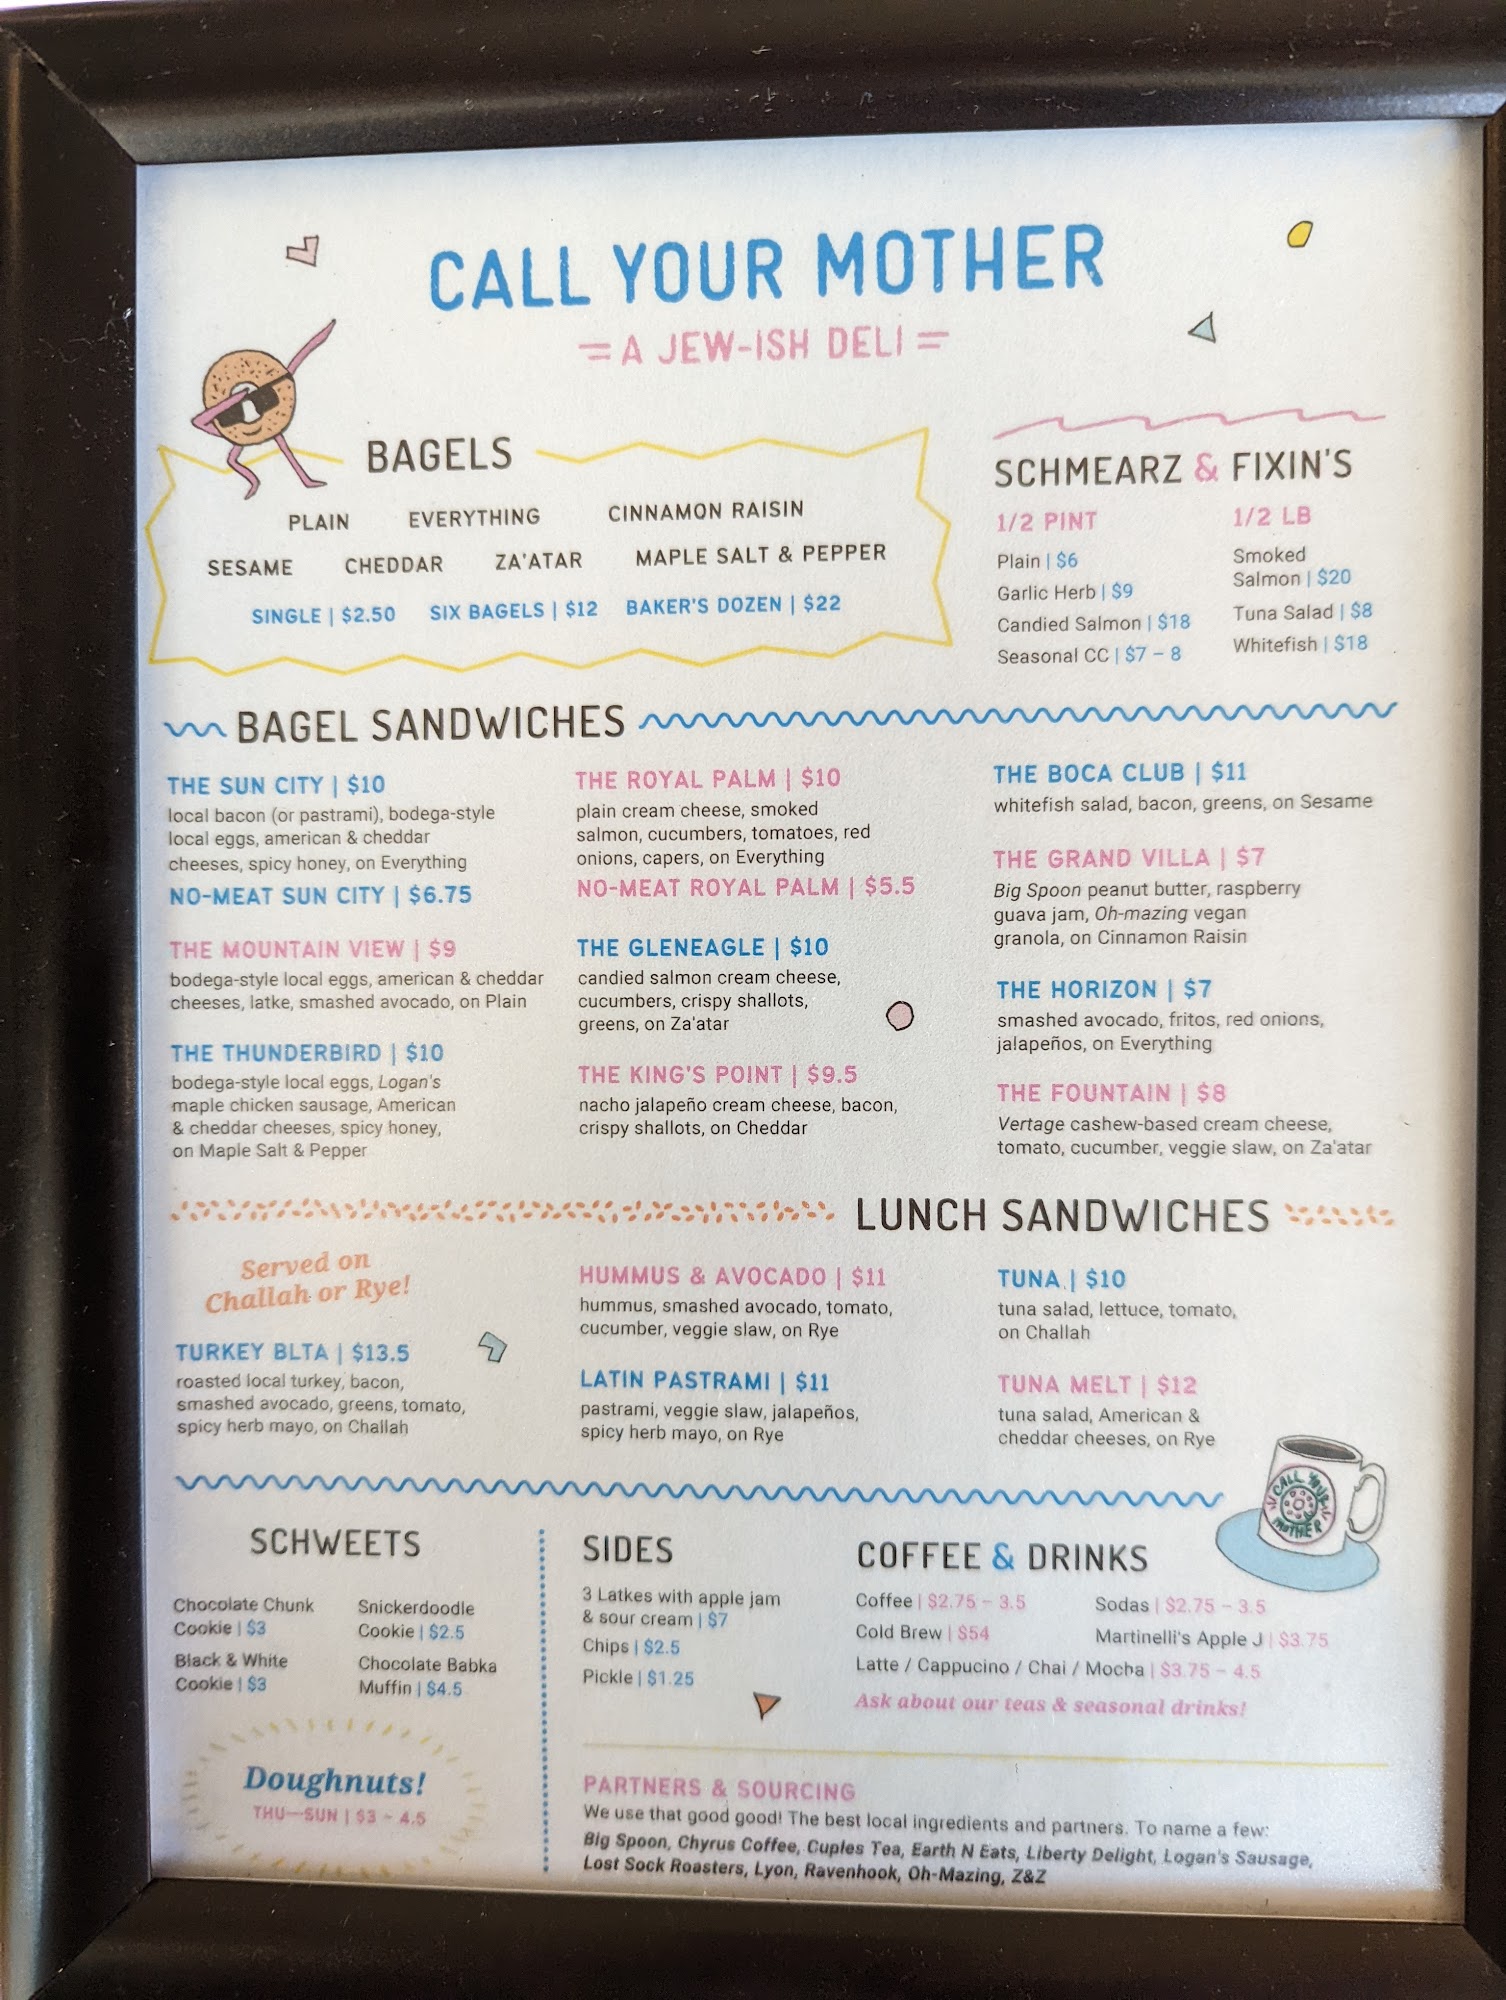 CALL YOUR MOTHER
= A JEW-ISH DELI =
BAGELS
PLAIN EVERYTHING CINNAMON RAISIN
SESAME CHEDDAR ZA'ATAR MAPLE SALT & PEPPER
SINGLE | $2.50 SIX BAGELS | $12 BAKER'S DOZEN | $22
SCHMEARZ & FIXIN'S
1/2 PINT
Plain | $6
Garlic Herb | $9
Candied Salmon | $18
Seasonal CC | $7 – 8
1/2 LB
Smoked
Salmon | $20
Tuna Salad | $8
Whitefish | $18
BAGEL SANDWICHES
THE SUN CITY | $10
local bacon (or pastrami), bodega-style
local eggs, american & cheddar
cheeses, spicy honey, on Everything
NO-MEAT SUN CITY | $6.75
THE MOUNTAIN VIEW | $9
bodega-style local eggs, american & cheddar
cheeses, latke, smashed avocado, on Plain
THE THUNDERBIRD | $10
bodega-style local eggs, Logan's
maple chicken sausage, American
& cheddar cheeses, spicy honey,
on Maple Salt & Pepper
THE ROYAL PALM | $10
plain cream cheese, smoked
salmon, cucumbers, tomatoes, red
onions, capers, on Everything
NO-MEAT ROYAL PALM | $5.5
THE GLENEAGLE | $10
candied salmon cream cheese,
cucumbers, crispy shallots,
greens, on Za'atar
THE KING'S POINT | $9.5
nacho jalapeño cream cheese, bacon,
crispy shallots, on Cheddar
THE BOCA CLUB | $11
whitefish salad, bacon, greens, on Sesame
THE GRAND VILLA | $7
Big Spoon peanut butter, raspberry
guava jam, Oh-mazing vegan
granola, on Cinnamon Raisin
THE HORIZON | $7
smashed avocado, fritos, red onions,
jalapeños, on Everything
THE FOUNTAIN | $8
Vertage cashew-based cream cheese,
tomato, cucumber, veggie slaw, on Za'atar
LUNCH SANDWICHES
Served on
Challah or Rye!
TURKEY BLTA | $13.5
roasted local turkey, bacon,
smashed avocado, greens, tomato,
spicy herb mayo, on Challah
HUMMUS & AVOCADO | $11
hummus, smashed avocado, tomato,
cucumber, veggie slaw, on Rye
LATIN PASTRAMI | $11
pastrami, veggie slaw, jalapeños,
spicy herb mayo, on Rye
TUNA | $10
tuna salad, lettuce, tomato,
on Challah
TUNA MELT | $12
tuna salad, American &
cheddar cheeses, on Rye
CALL YOUR
MOTHER
SCHWEETS
Chocolate Chunk
Cookie | $3
Black & White
Cookie | $3
Snickerdoodle
Cookie | $2.5
Chocolate Babka
Muffin | $4.5
Doughnuts!
THU—SUN | $3 – 4.5
SIDES
3 Latkes with apple jam
& sour cream | $7
Chips | $2.5
Pickle | $1.25
COFFEE & DRINKS
Coffee | $2.75 – 3.5
Cold Brew | $54
Sodas | $2.75 – 3.5
Martinelli's Apple J | $3.75
Latte / Cappucino / Chai / Mocha | $3.75 – 4.5
Ask about our teas & seasonal drinks!
PARTNERS & SOURCING
We use that good good! The best local ingredients and partners. To name a few:
Big Spoon, Chyrus Coffee, Cuples Tea, Earth N Eats, Liberty Delight, Logan's Sausage,
Lost Sock Roasters, Lyon, Ravenhook, Oh-Mazing, Z&Z